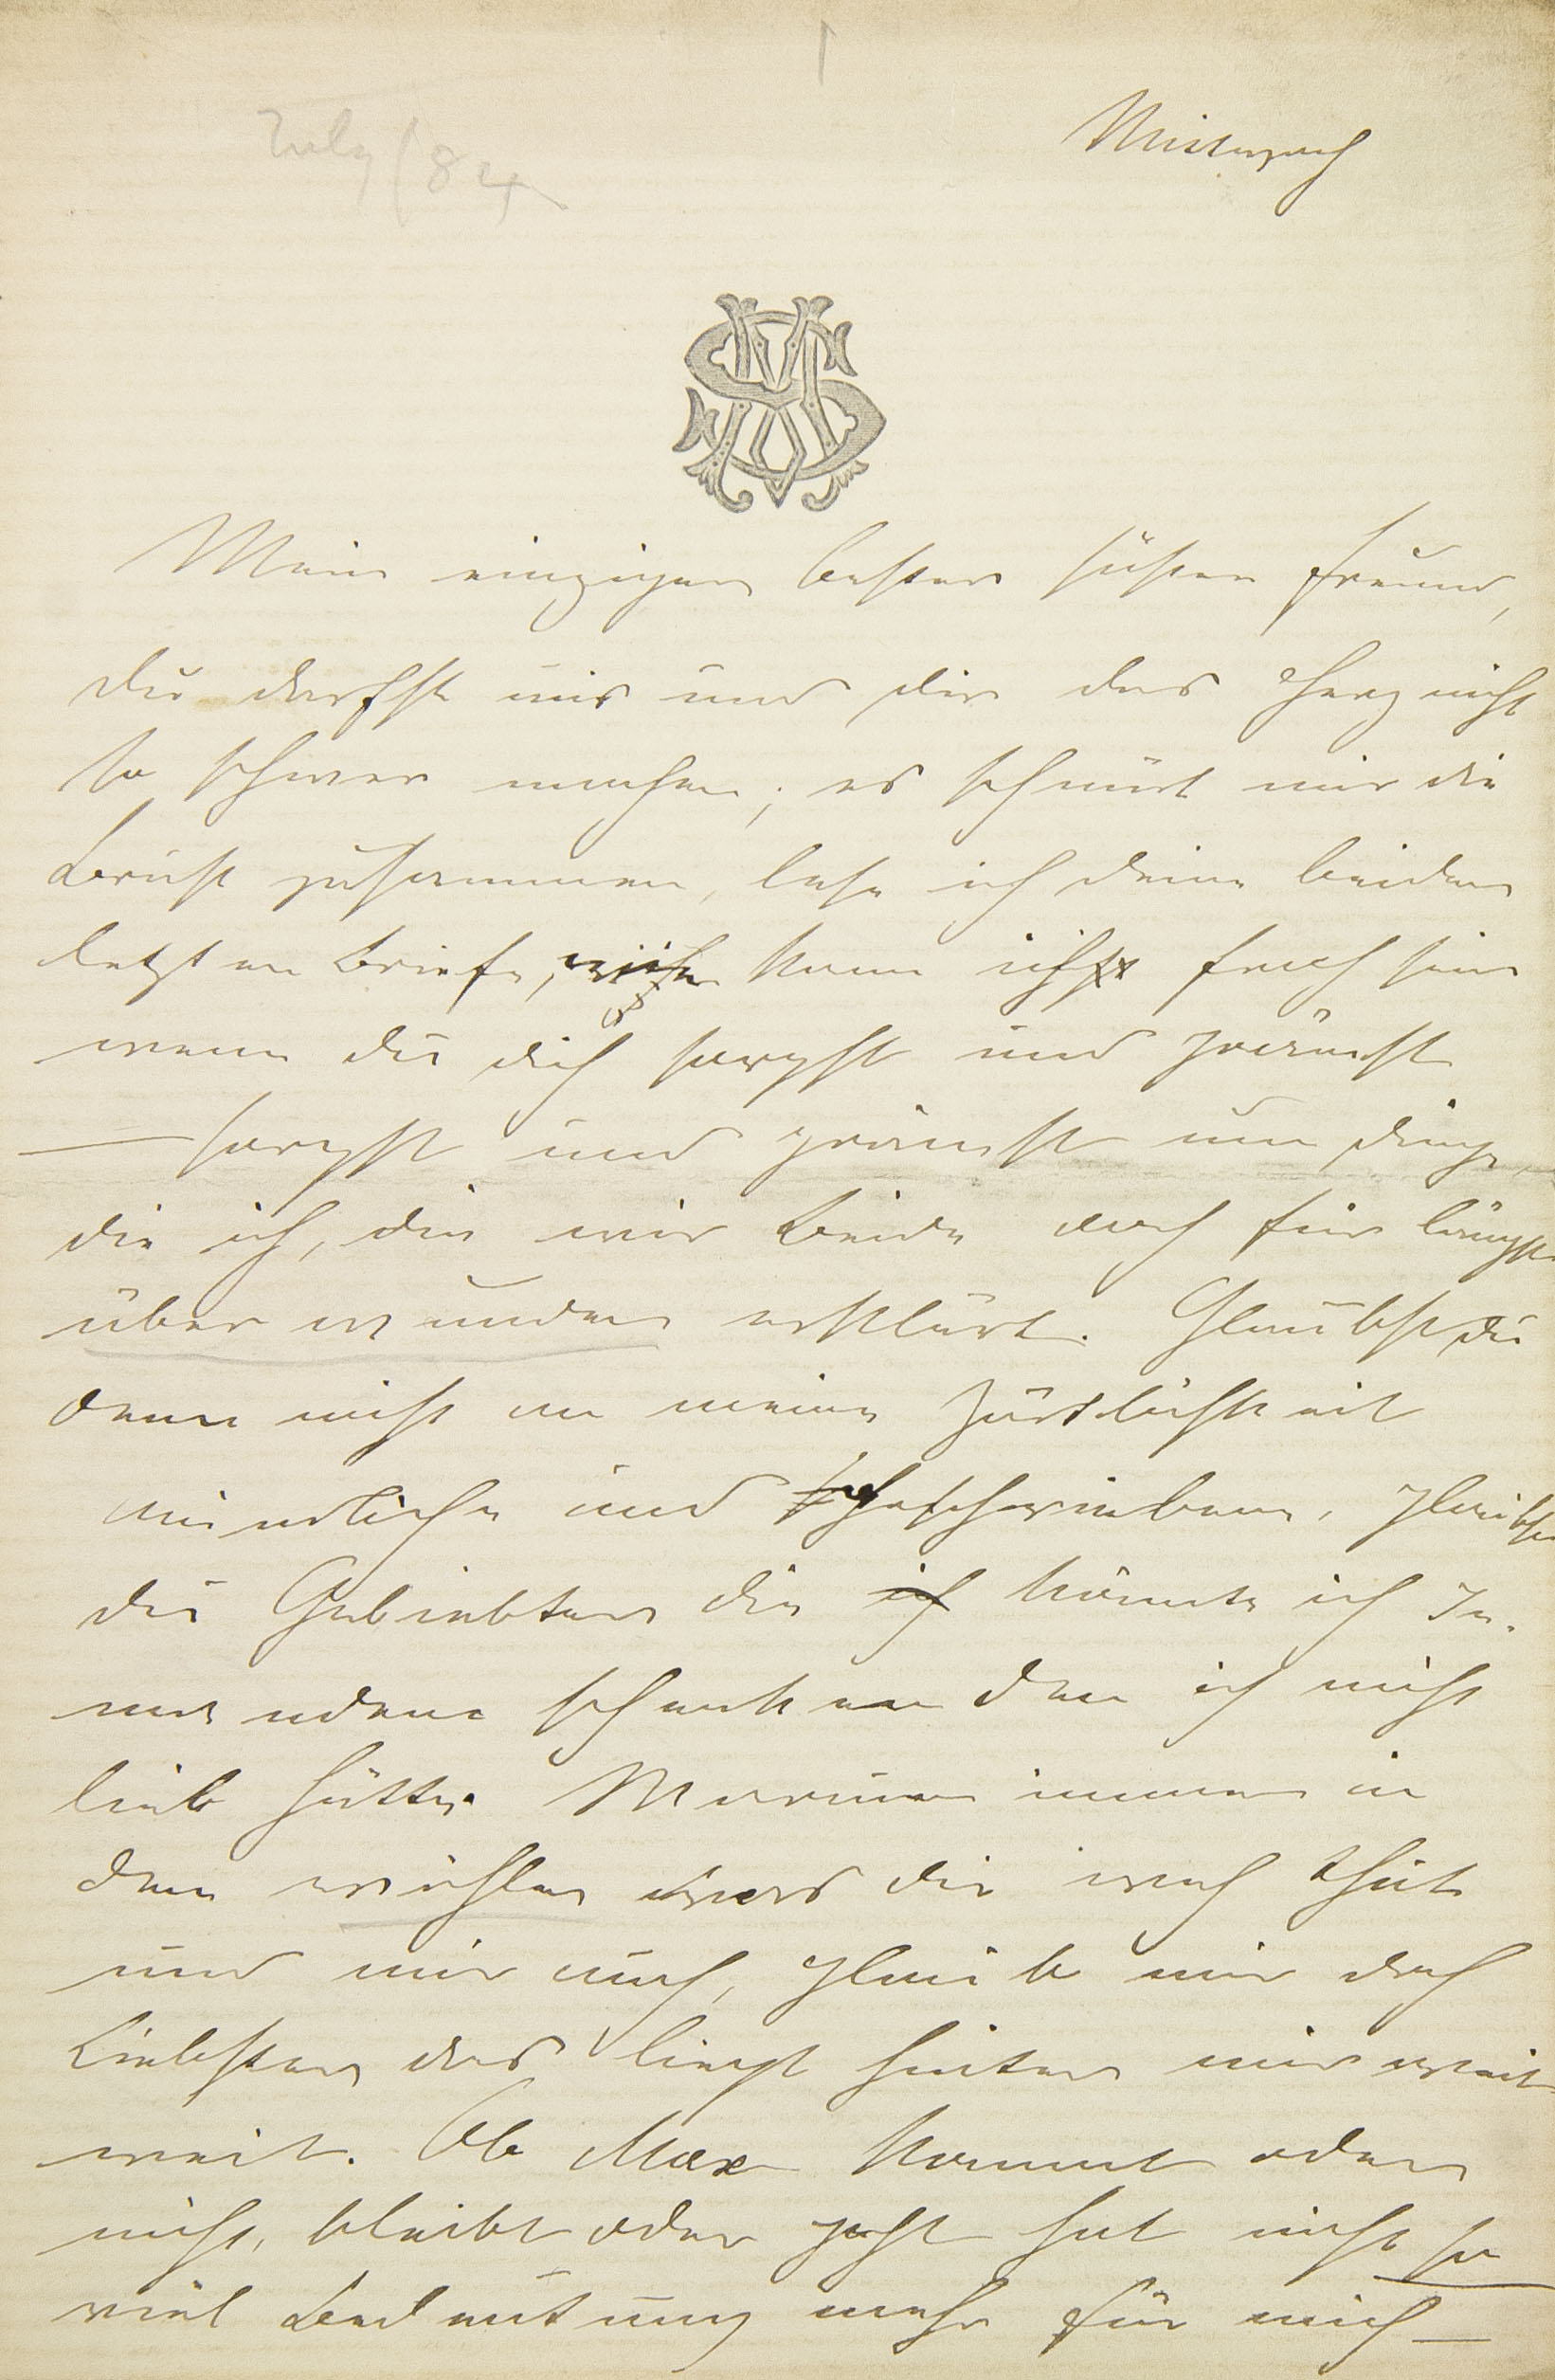 July/84
Mittwoch
Mein einziger bester süßer Freund,
du darfst mir und dir das Herz nicht
so schwer machen; es schnürt mir die
Brust zusammen, lese ich deine beiden
letzten Briefe, wie kann ich froh sein
wenn du dich sorgst und grämst
— sorgst und grämst um Dinge,
die ich, die wir Beide doch für längst
überwunden erklärt. Glaubst du
denn nicht an meine Zärtlichkeit
mündliche und geschriebene, glaubst
du Geliebter die ich könnte ich Je-
mandem schenken den ich nicht
lieb hätte. Warum immer in
dem wühlen was dir weh thut
und mir auch, glaub mir doch
Liebster das liegt hinter mir weit
weit. Ob Max kommt oder
nicht, bleibt oder geht hat nicht so
viel Bedeutung mehr für mich —